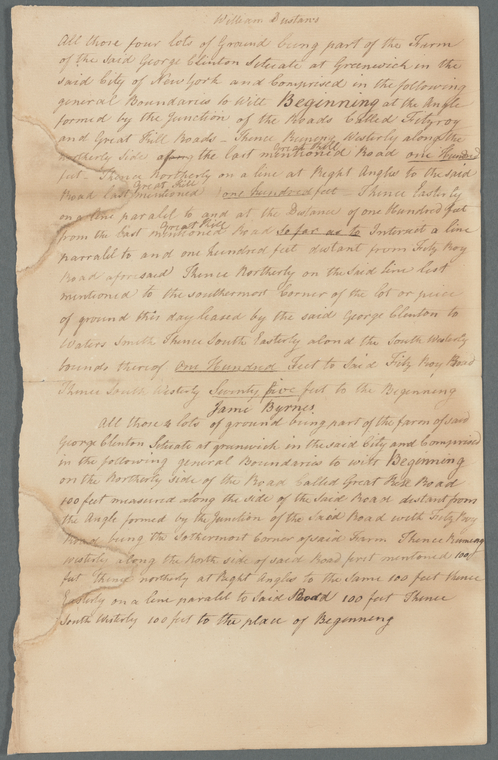 William Dustans
All those four lots of Ground being part of the Farm
of the Said George Clinton Situate at Greenwich in the
said City of New York and Comprised in the following
general Boundaries to Witt Beginning at the Angle
formed by the Junction of the Roads Called Fitzroy
and Great Kill Roads - Thence Runing Westerly along the
Northerly Side of the last mentioned Road one Hundred
Great Kill
feet - Thence Northerly on a line at Right Angles to the said
Road last mentioned one hundred feet - Thence Easterly
Great Kill
on a line paralel to and at the Distance of one Hundred feet
from the last mentioned Road so far as to Intersect a line
Great Kill
parralel to and one hundred feet distant from Fitz Roy
Road aforesaid Thence Northerly on the Said line last
mentioned to the southermost Corner of the lot or piece
of ground this day leased by the said George Clinton to
Waters Smith Thence South Easterly along the South Westerly
bounds thereof One Hundred Feet to Said Fitz Roy Road
Thence South Westerly Seventy five feet to the Beginning
James Byrnes
All those 4 lots of ground being part of the farm of said
George Clinton Situate at grunwich in the said City and Comprised
in the following general Boundaries to witt Beginning
on the Northerly Side of the Road Called Great Kill Road
100 feet measured along the side of the Said Road distant from
the Angle formed by the Junction of the Said Road with Fitz Roy
Road being the Sothermost Corner of said Farm Thence Runing
Westerly along the North side of said Road first mentioned 100
feet Thence northerly at Right Angles to the Same 100 feet thence
Easterly on a line paralel to Said Road 100 feet Thence
South Westerly 100 feet to the place of Beginning